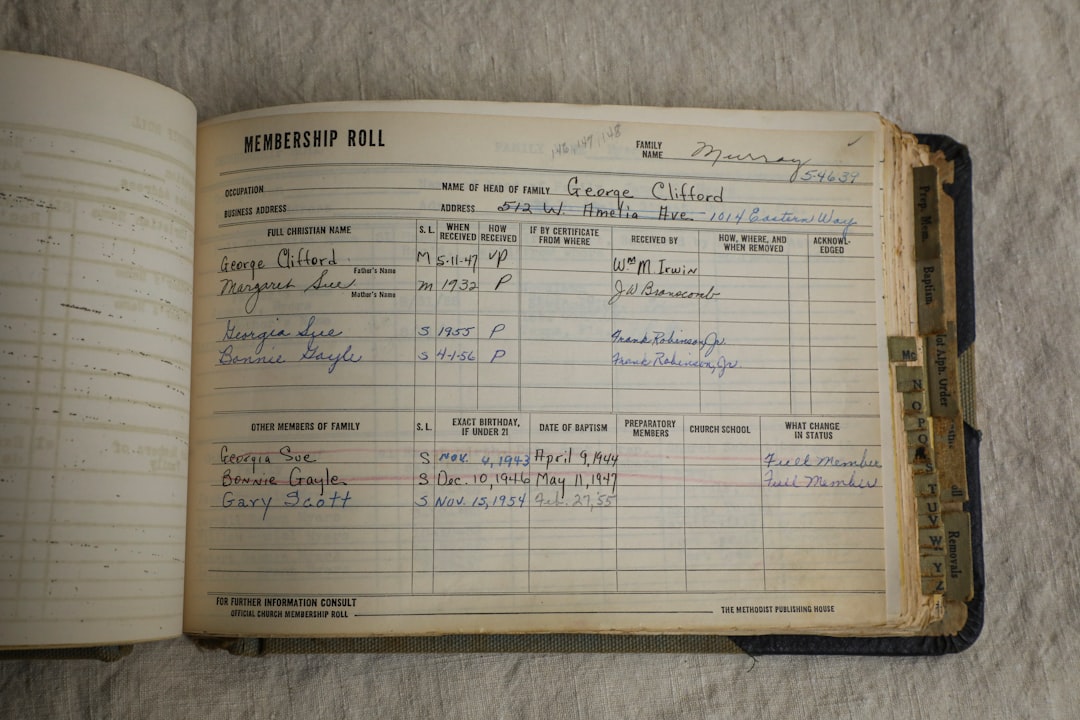 MEMBERSHIP ROLL
146 147 148
FAMILY NAME Murray
54639
OCCUPATION NAME OF HEAD OF FAMILY George Clifford
BUSINESS ADDRESS ADDRESS 512 W. Amelia Ave. - 1014 Eastern Way
FULL CHRISTIAN NAME S. L. WHEN RECEIVED HOW RECEIVED IF BY CERTIFICATE FROM WHERE RECEIVED BY HOW, WHERE, AND WHEN REMOVED ACKNOWL- EDGED
George Clifford M 5-11-47 VP Wm M Irwin
Father's Name
Margaret Sue m 1932 P J W Branscomb
Mother's Name
Georgia Sue S 1955 P Frank Robinson, Jr.
Bonnie Gayle S 4-1-56 P Frank Robinson, Jr.
OTHER MEMBERS OF FAMILY S. L. EXACT BIRTHDAY, IF UNDER 21 DATE OF BAPTISM PREPARATORY MEMBERS CHURCH SCHOOL WHAT CHANGE IN STATUS
Georgia Sue S Nov. 4, 1943 April 9, 1944 Full Member
Bonnie Gayle S Dec. 10, 1946 May 11, 1947 Full Member
Gary Scott S Nov. 15, 1954 Feb. 27, '55
FOR FURTHER INFORMATION CONSULT
OFFICIAL CHURCH MEMBERSHIP ROLL THE METHODIST PUBLISHING HOUSE
Prep. Mem.
Baptism
Alph. Order
Removals
Mc
N
O
P
Q
S
T
U
V
W
Y
Z